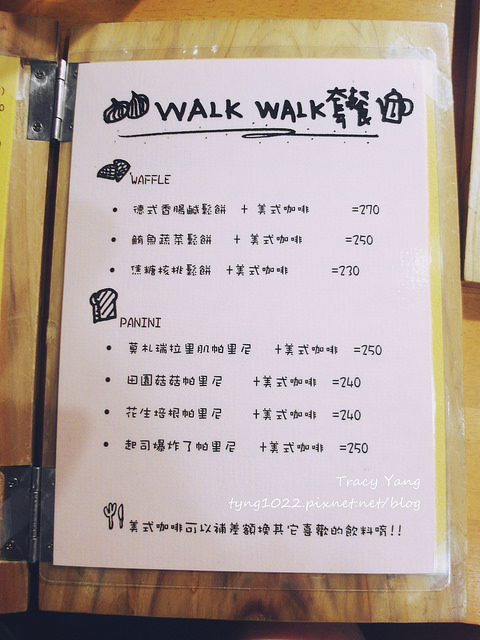 WALK WALK套餐
WAFFLE
• 德式香腸鹹鬆餅 + 美式咖啡 =270
• 鮪魚蔬菜鬆餅 + 美式咖啡 =250
• 焦糖核桃鬆餅 +美式咖啡 =230
PANINI
• 莫札瑞拉里肌帕里尼 +美式咖啡 =250
• 田園菇菇帕里尼 +美式咖啡 =240
• 花生培根帕里尼 +美式咖啡 =240
• 起司爆炸了帕里尼 +美式咖啡 =250
Tracy Yang
tyng1022.pixnet.net/blog
美式咖啡可以補差額換其它喜歡的飲料唷!!